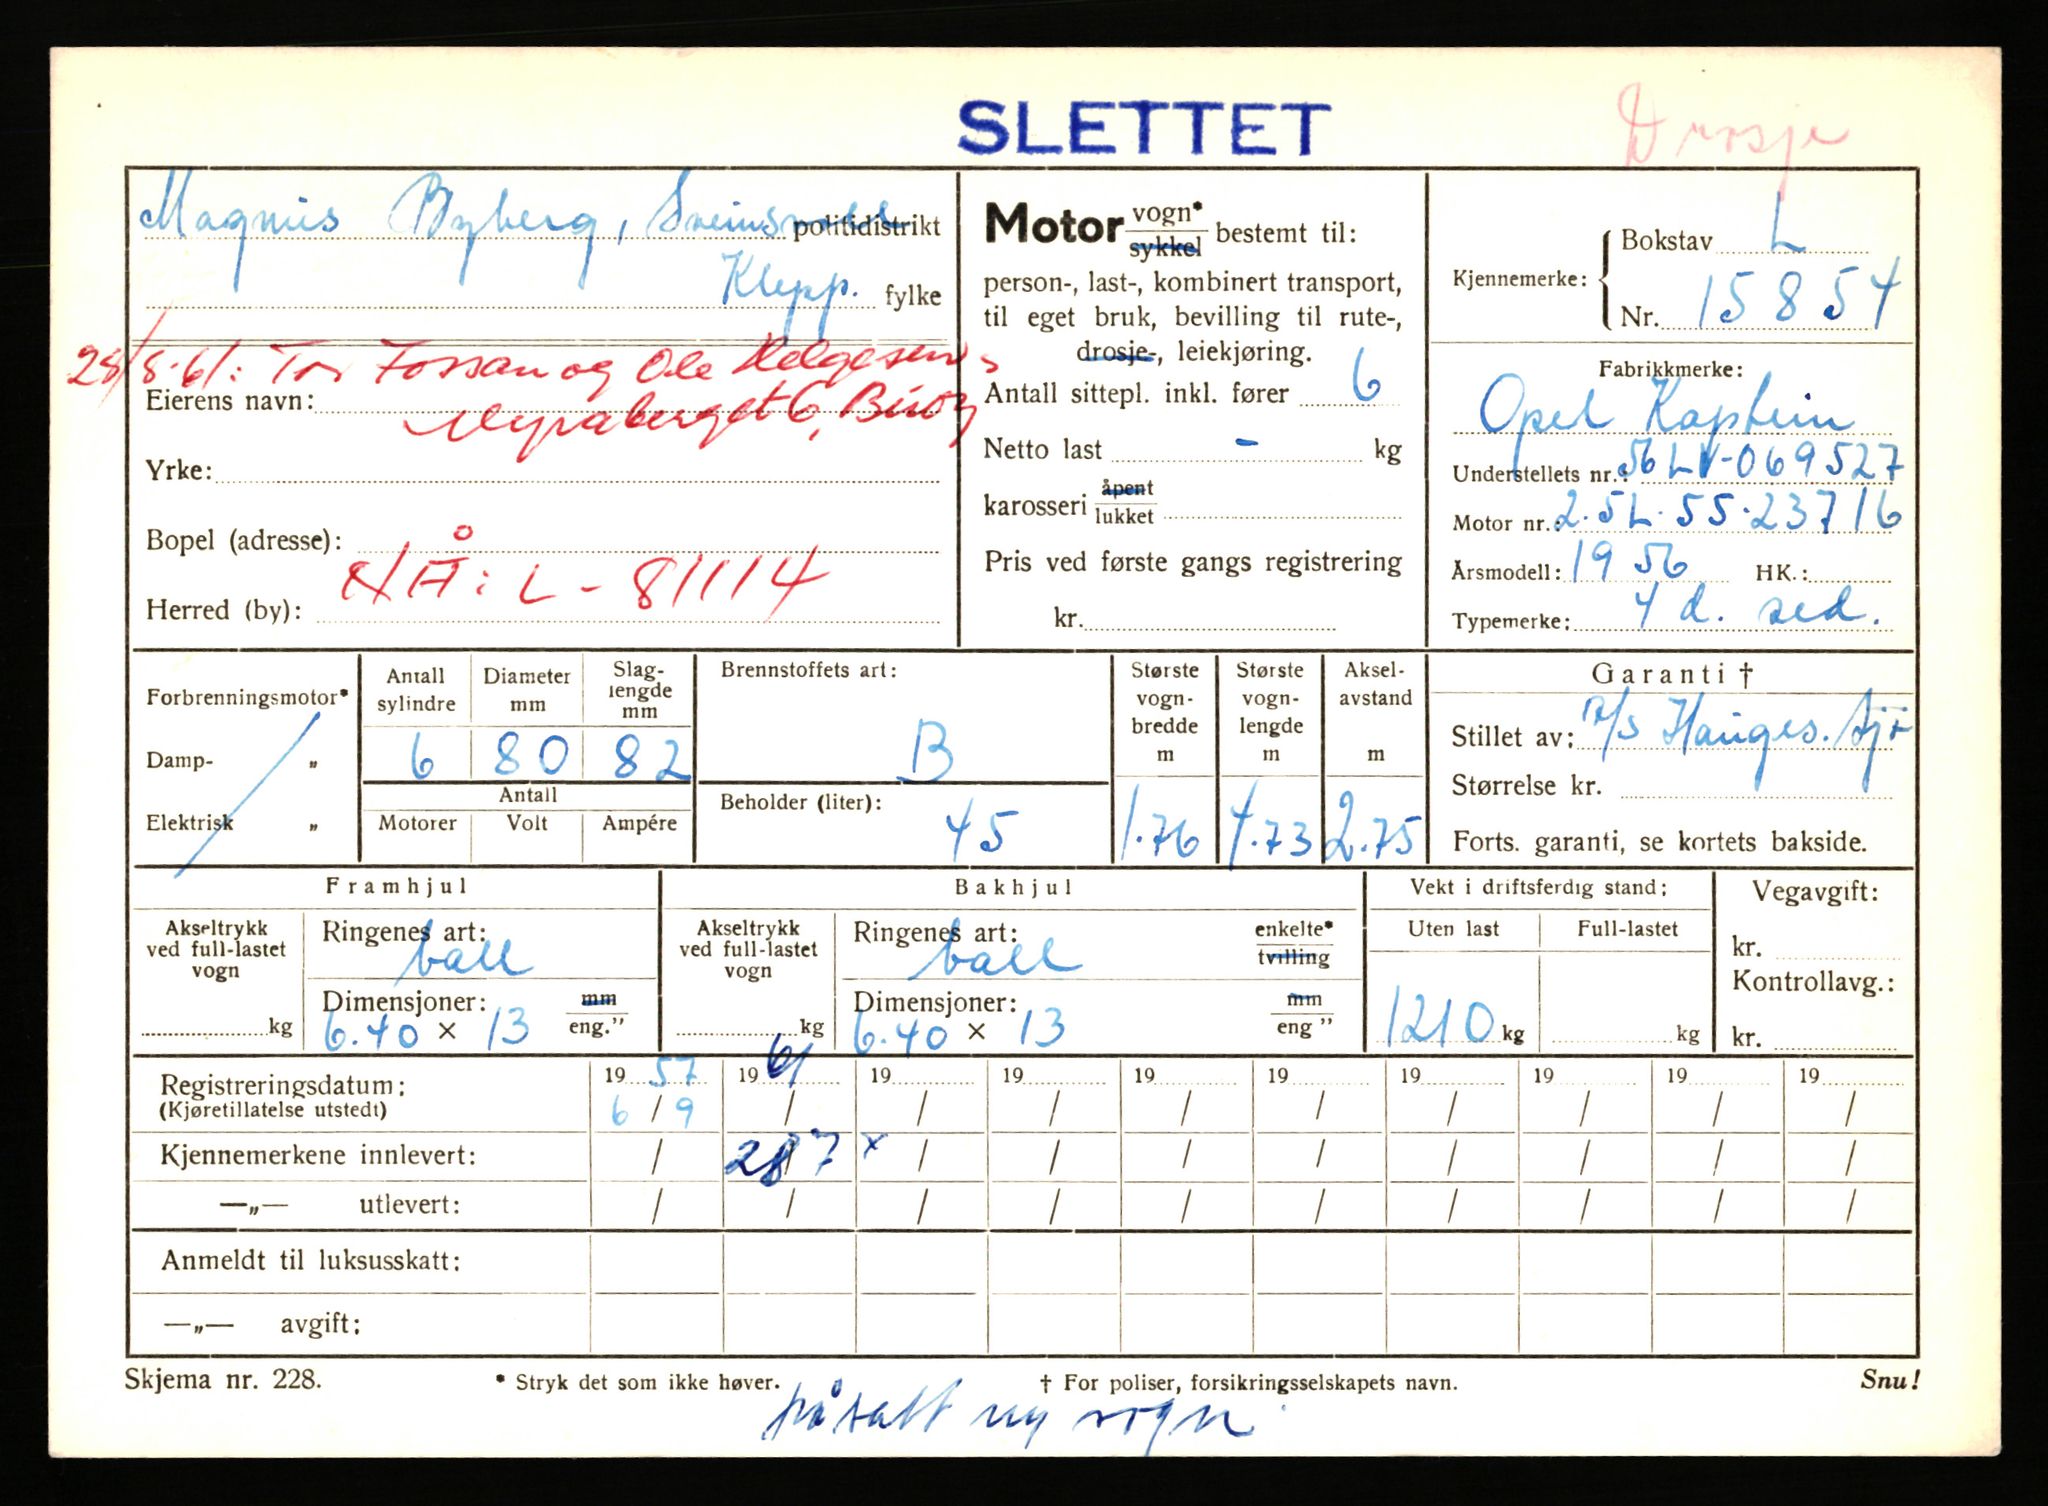 SLETTET
Drosje
Magnus Byberg, politidistrikt
Klepp. fylke
28/8-61: Tor Fossan og Ole Helgesen,
Eierens navn: Myraberget 6,
Yrke:
Bopel (adresse):
NÅ: L - 81114
Herred (by):
Motor vogn* sykkel bestemt til:
person-, last-, kombinert transport,
til eget bruk, bevilling til rute-,
drosje-, leiekjøring.
Antall sittepl. inkl. fører 6
Netto last - kg
karosseri åpent lukket
Pris ved første gangs registrering
kr.
Kjennemerke: Bokstav L
Nr. 15854
Fabrikkmerke:
Opel Kaptein
Understellets nr.: 56LV-069527
Motor nr.: 2.5L-55-23716
Årsmodell: 1956 HK.:
Typemerke: 4 d. sed.
Forbrenningsmotor*
Damp- „
Elektrisk „
Antall sylindre Diameter mm Slag-lengde mm
6 80 82
Antall
Motorer Volt Ampére
Brennstoffets art:
B
Beholder (liter):
45
Største vogn-bredde m
1.76
Største vogn-lengde m
4.73
Aksel-avstand m
2.75
Garanti †
Stillet av: A/S Hauges.
Størrelse kr.
Forts. garanti, se kortets bakside.
Framhjul
Akseltrykk ved full-lastet vogn
kg
Ringenes art:
ball
Dimensjoner: mm
6.40 × 13 eng.”
Bakhjul
Akseltrykk ved full-lastet vogn
kg
Ringenes art: enkelte*
ball tvilling
Dimensjoner: mm
6.40 × 13 eng ”
Vekt i driftsferdig stand:
Uten last Full-lastet
1210 kg kg
Vegavgift:
kr.
Kontrollavg.:
kr.
Registreringsdatum: 19 57 19 61 19 19 19 19 19 19 19 19
(Kjøretillatelse utstedt) 6 / 9 / / / / / / / / /
Kjennemerkene innlevert: / 28/7 x / / / / / / / /
—„— utlevert: / / / / / / / / / /
Anmeldt til luksusskatt:
—„— avgift:
Skjema nr. 228. * Stryk det som ikke høver. † For poliser, forsikringsselskapets navn. Snu!
påsatt ny vogn